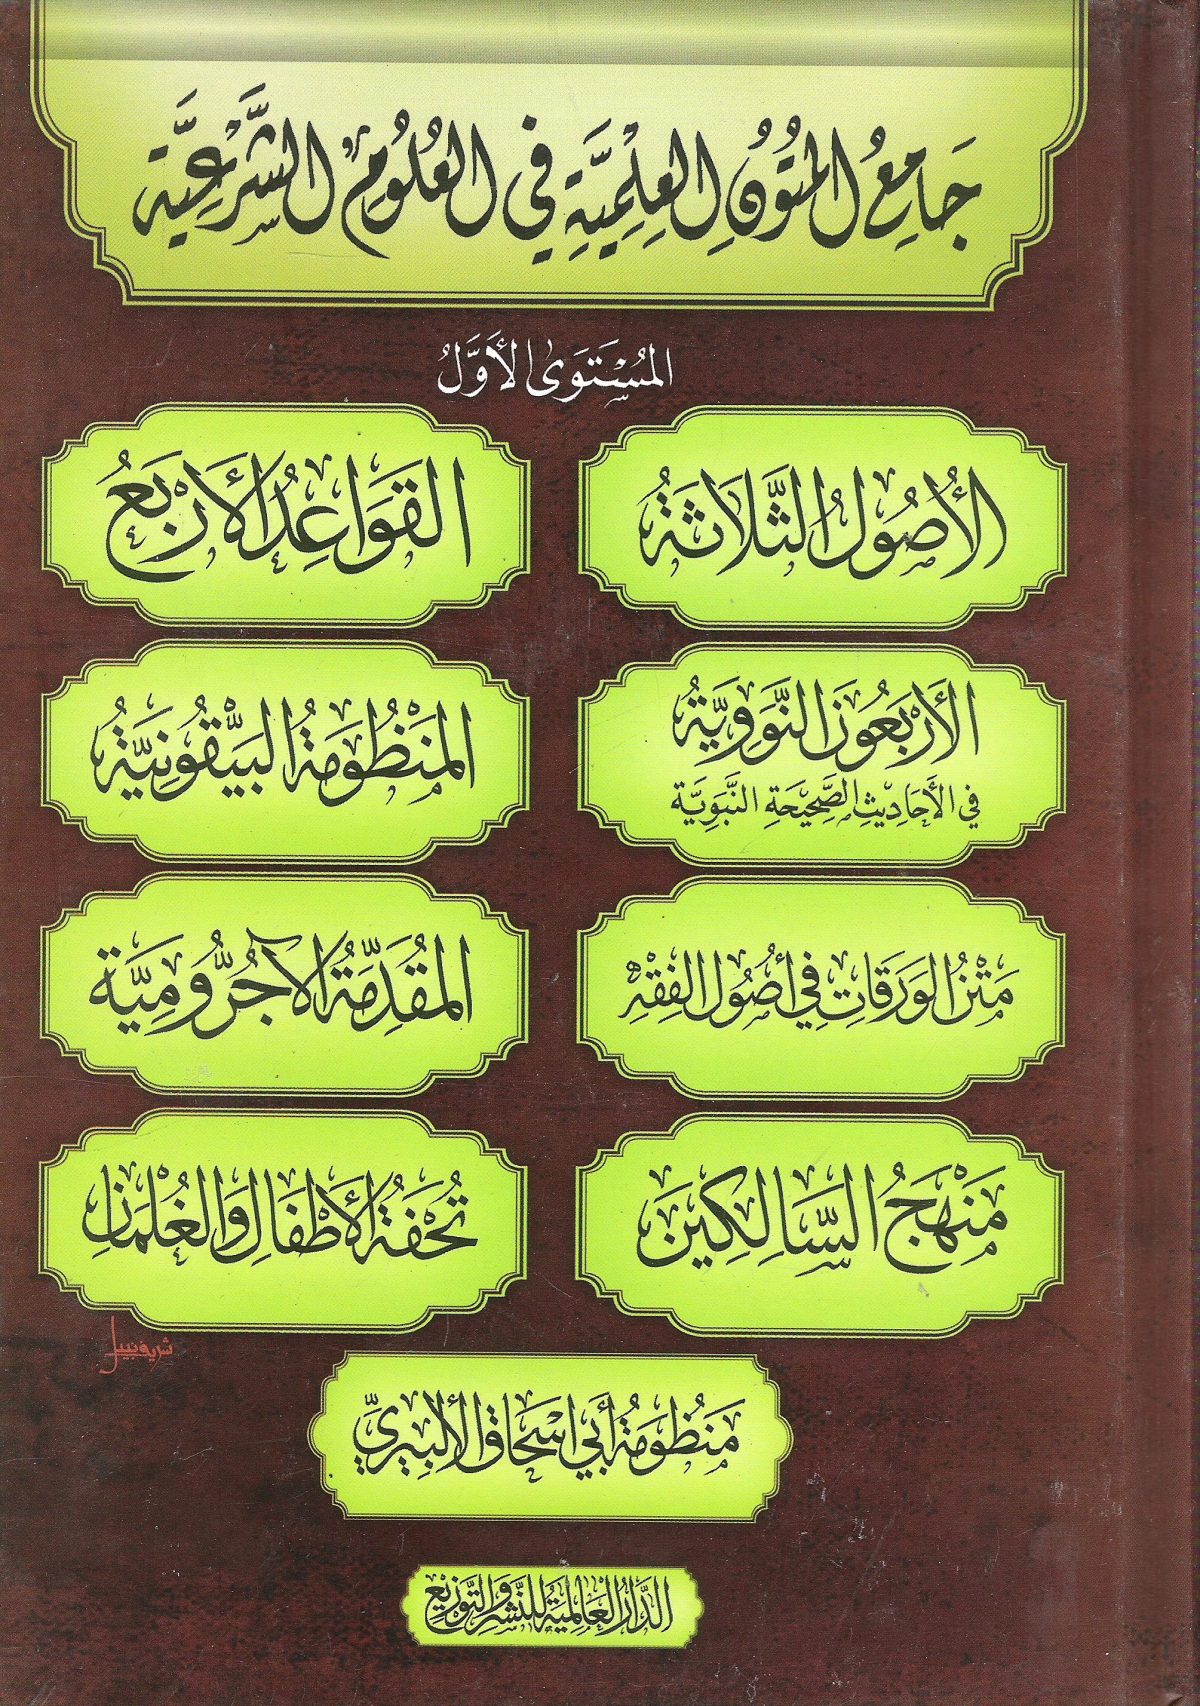 جَامِعُ المُتُونِ العِلْمِيَّةِ فِي العُلُومِ الشَّرْعِيَّةِ
المُسْتَوَى الأَوَّلُ
الأُصُولُ الثَّلَاثَةُ
القَوَاعِدُ الأَرْبَعُ
الأَرْبَعُونَ النَّوَوِيَّةُ
فِي الأَحَادِيثِ الصَّحِيحَةِ النَّبَوِيَّةِ
المَنْظُومَةُ البَيْقُونِيَّةُ
مَتْنُ الوَرَقَاتِ فِي أُصُولِ الفِقْهِ
المُقَدِّمَةُ الآجُرُّومِيَّةُ
مَنْهَجُ السَّالِكِينَ
تُحْفَةُ الأَطْفَالِ وَالغِلْمَانِ
مَنْظُومَةُ أَبِي إِسْحَاقَ الأَلْبِيرِيِّ
الدَّارُ العَالَمِيَّةُ لِلنَّشْرِ وَالتَّوْزِيعِ